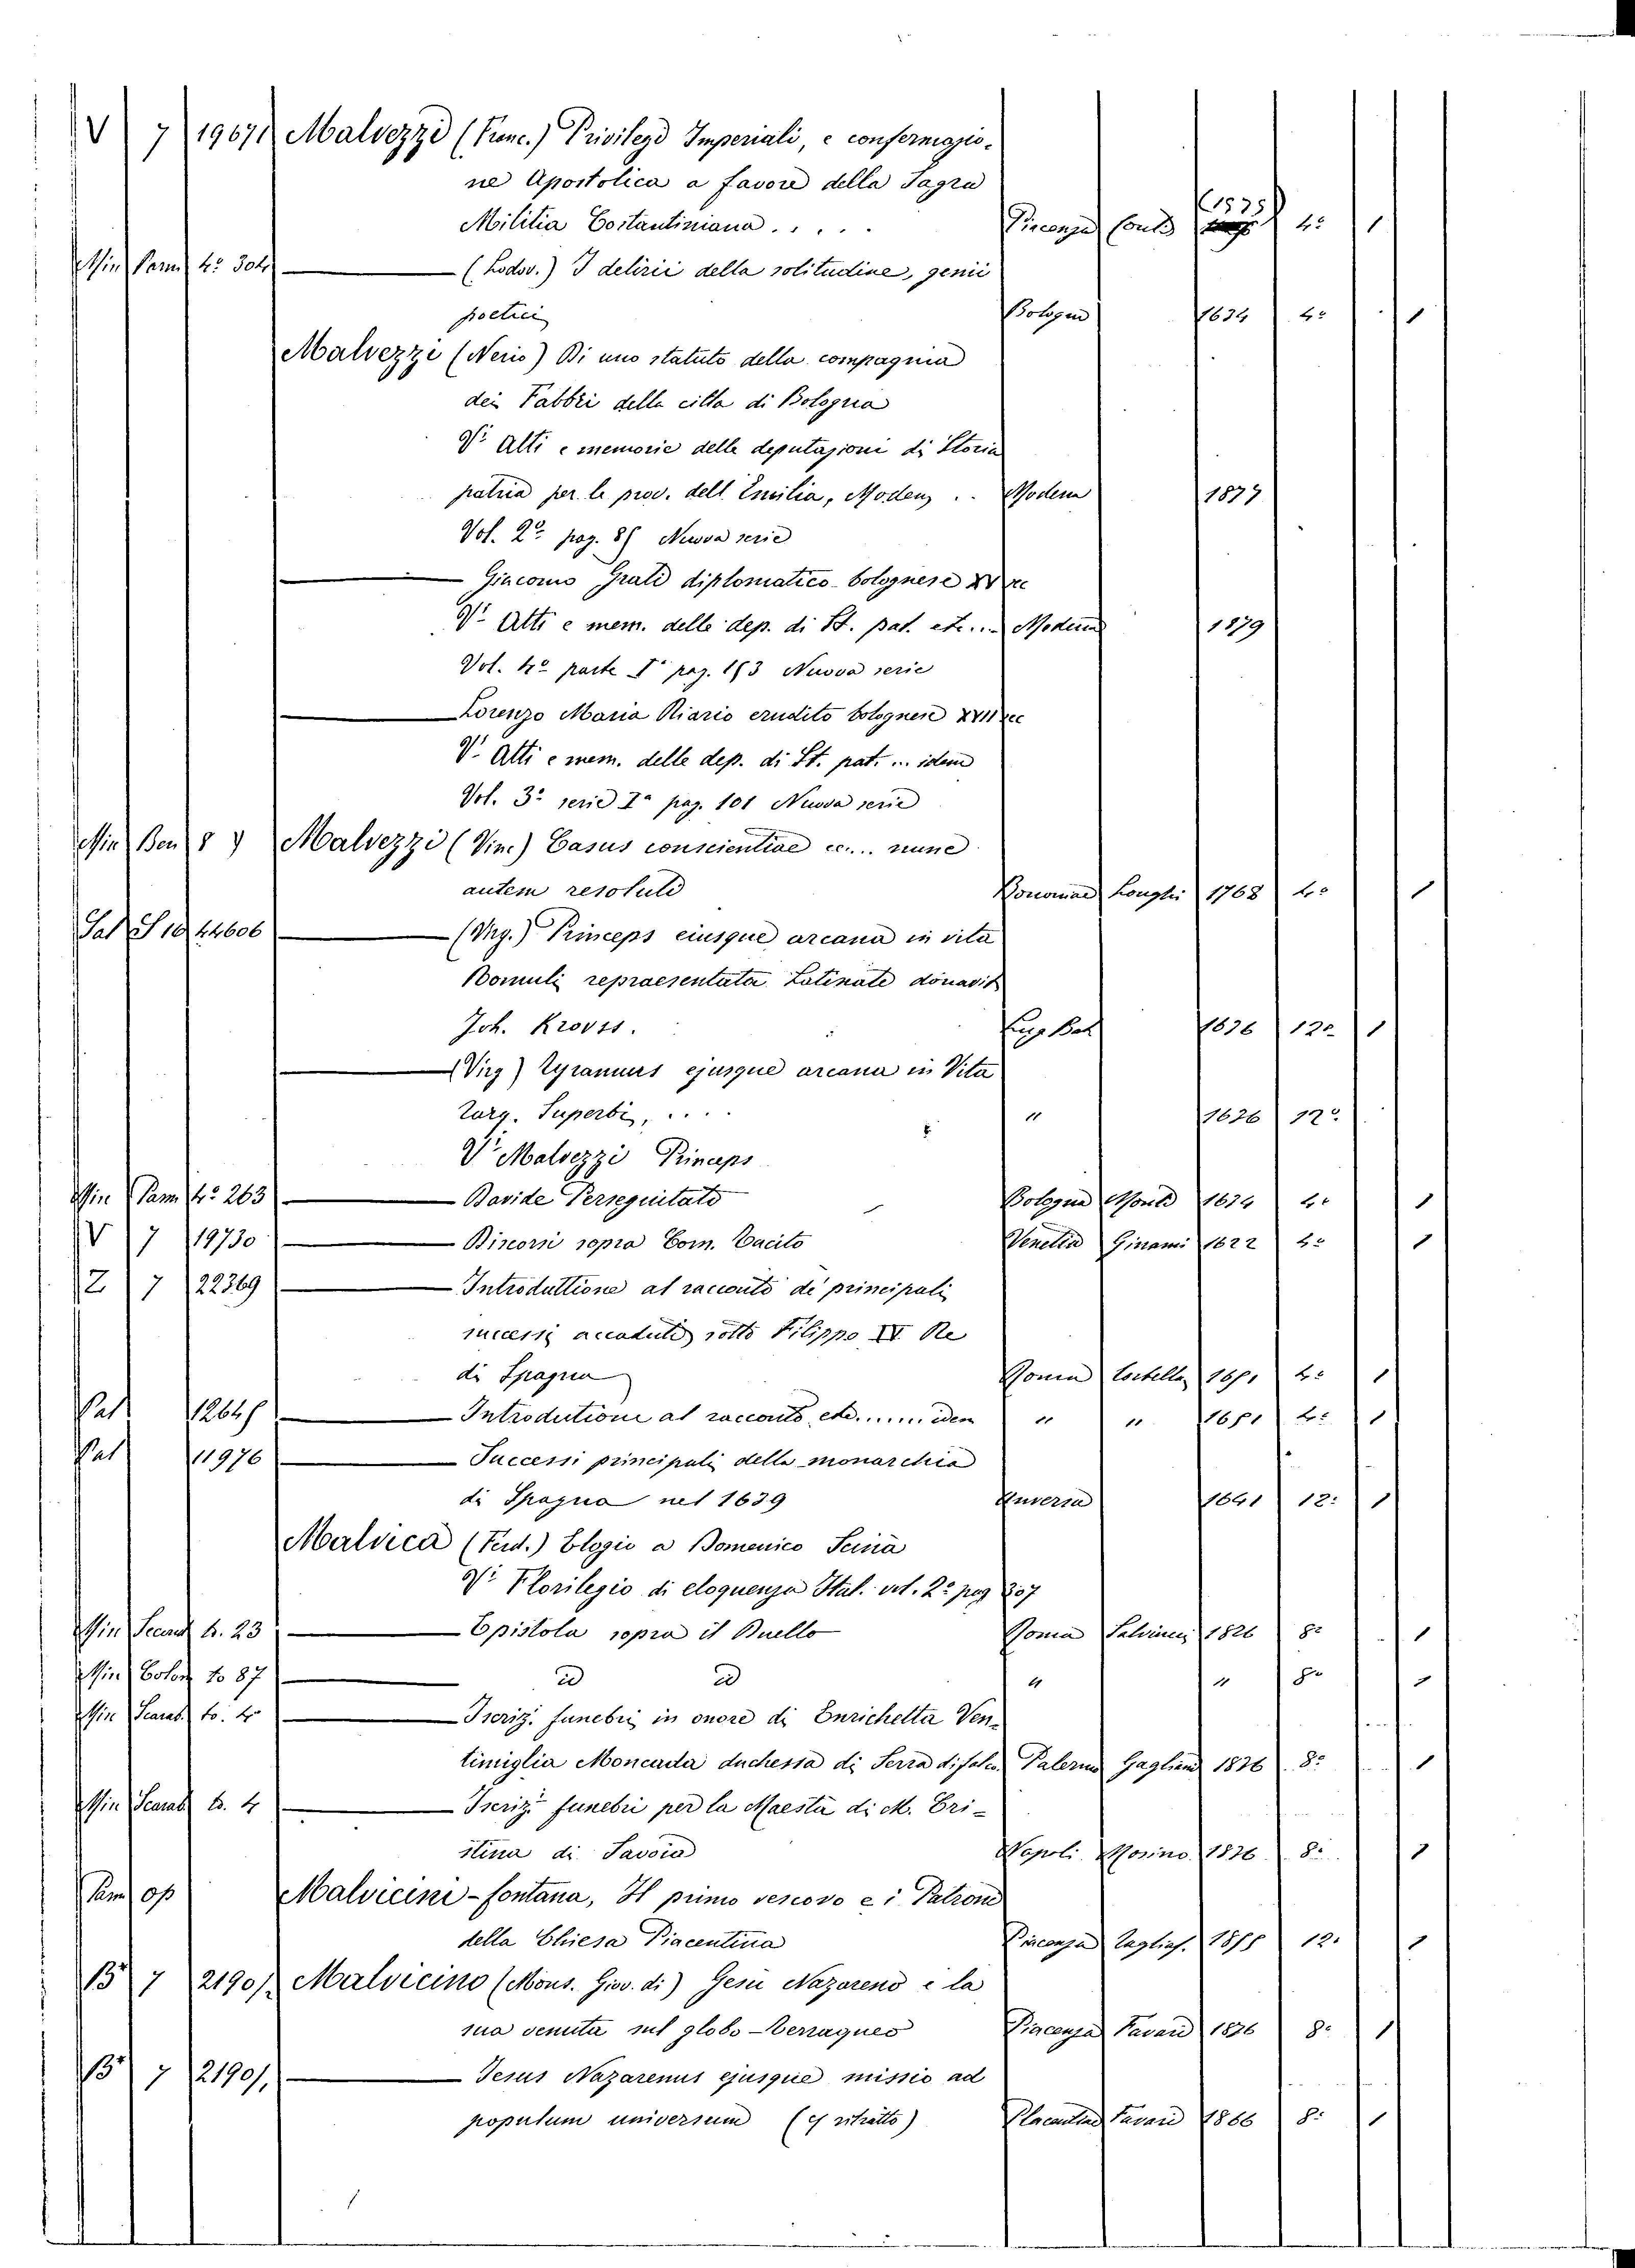 V 7 19671 Malvezzi (Franc.) Privilegi Imperiali, e confermazio-
ne Apostolica a favore della Sagra
Militia Costantiniana..... Piacenza Conti (1575) 4º 1
Min Parm 4º 304 — (Lodov.) I delirii della solitudine, genii
poetici Bologna 1634 4º 1
Malvezzi (Nerio) Di uno statuto della compagnia
dei Fabbri della citta di Bologna
Vi Atti e memorie delle deputazioni di Storia
patria per le prov. dell Emilia, Moden, .. Modena 1877
Vol. 2º pag. 85 Nuova serie
— Giacomo Grati diplomatico-bolognese XV sec
Vi Atti e mem. delle dep. di St. pat. etc... Modena 1879
Vol. 4º parte Iª pag. 153 Nuova serie
— Lorenzo Maria Riario erudito bolognese XVII sec
V. Atti e mem. delle dep. di St. pat. ... idem
Vol. 3º serie Iª pag. 101 Nuova serie
Min Ben 8 7 Malvezzi (Vinc) Casus conscientiae ec... nunc
autem resoluti Bononiae Longhi 1768 4º 1
Sal S 10 44606 — (Virg.) Princeps eiusque arcana in vita
Romuli repraesentata Latinate donavit
Joh. Krovss. Lug Bat 1636 12º 1
— (Virg) Tyrannus ejusque arcana in Vita
Tarq. Superbi, .... " 1636 12º
Vi Malvezzi Princeps
Min Parm 4º 263 — Davide Perseguitato Bologna Monti 1634 4º 1
V 7 19730 — Discorsi sopra Corn. Tacito Venetia Ginami 1622 4º 1
Z 7 22369 — Introduttione al racconto de' principali
successi accaduti sotto Filippo IV Re
di Spagna Roma 1651 4º 1
Pal 12645 — Introdutione al racconto etc...... idem " " 1651 4º 1
Pal 11976 — Successi principali della monarchia
di Spagna nel 1639 Anversa 1641 12: 1
Malvica (Ferd.) Elogio a Domenico Scinà
Vi Florilegio di eloquenza Ital. vol. 2º pag 307
Min Scarab b. 23 — Epistola sopra il Duello Roma Salviucci 1826 8º 1
Min Colon to 87 — id id " " 8º 1
Min Scarab. to. 4 — Iscriz. funebri in onore di Enrichetta Ven-
timiglia Moncada duchessa di Serra difalco. Palermo Gagliani 1836 8º 1
Min Scarab b. 4 — Iscriz. funebri per la Maestà di M. Cri-
stina di Savoia Napoli Morino 1836 8º 1
Parm op Malvicini-fontana, Il primo vescovo e i Patroni
della Chiesa Piacentina Piacenza Tagliaf. 1855 12. 1
B 7 21905 Malvicino (Mons. Giov. di) Gesù Nazareno e la
sua venuta sul globo-Terraqueo Piacenza Favari 1876 8º 1
B 7 21905, — Jesus Nazarenus ejusque missio ad
populum universum (c/ ritratto) Placentiae Favari 1866 8: 1